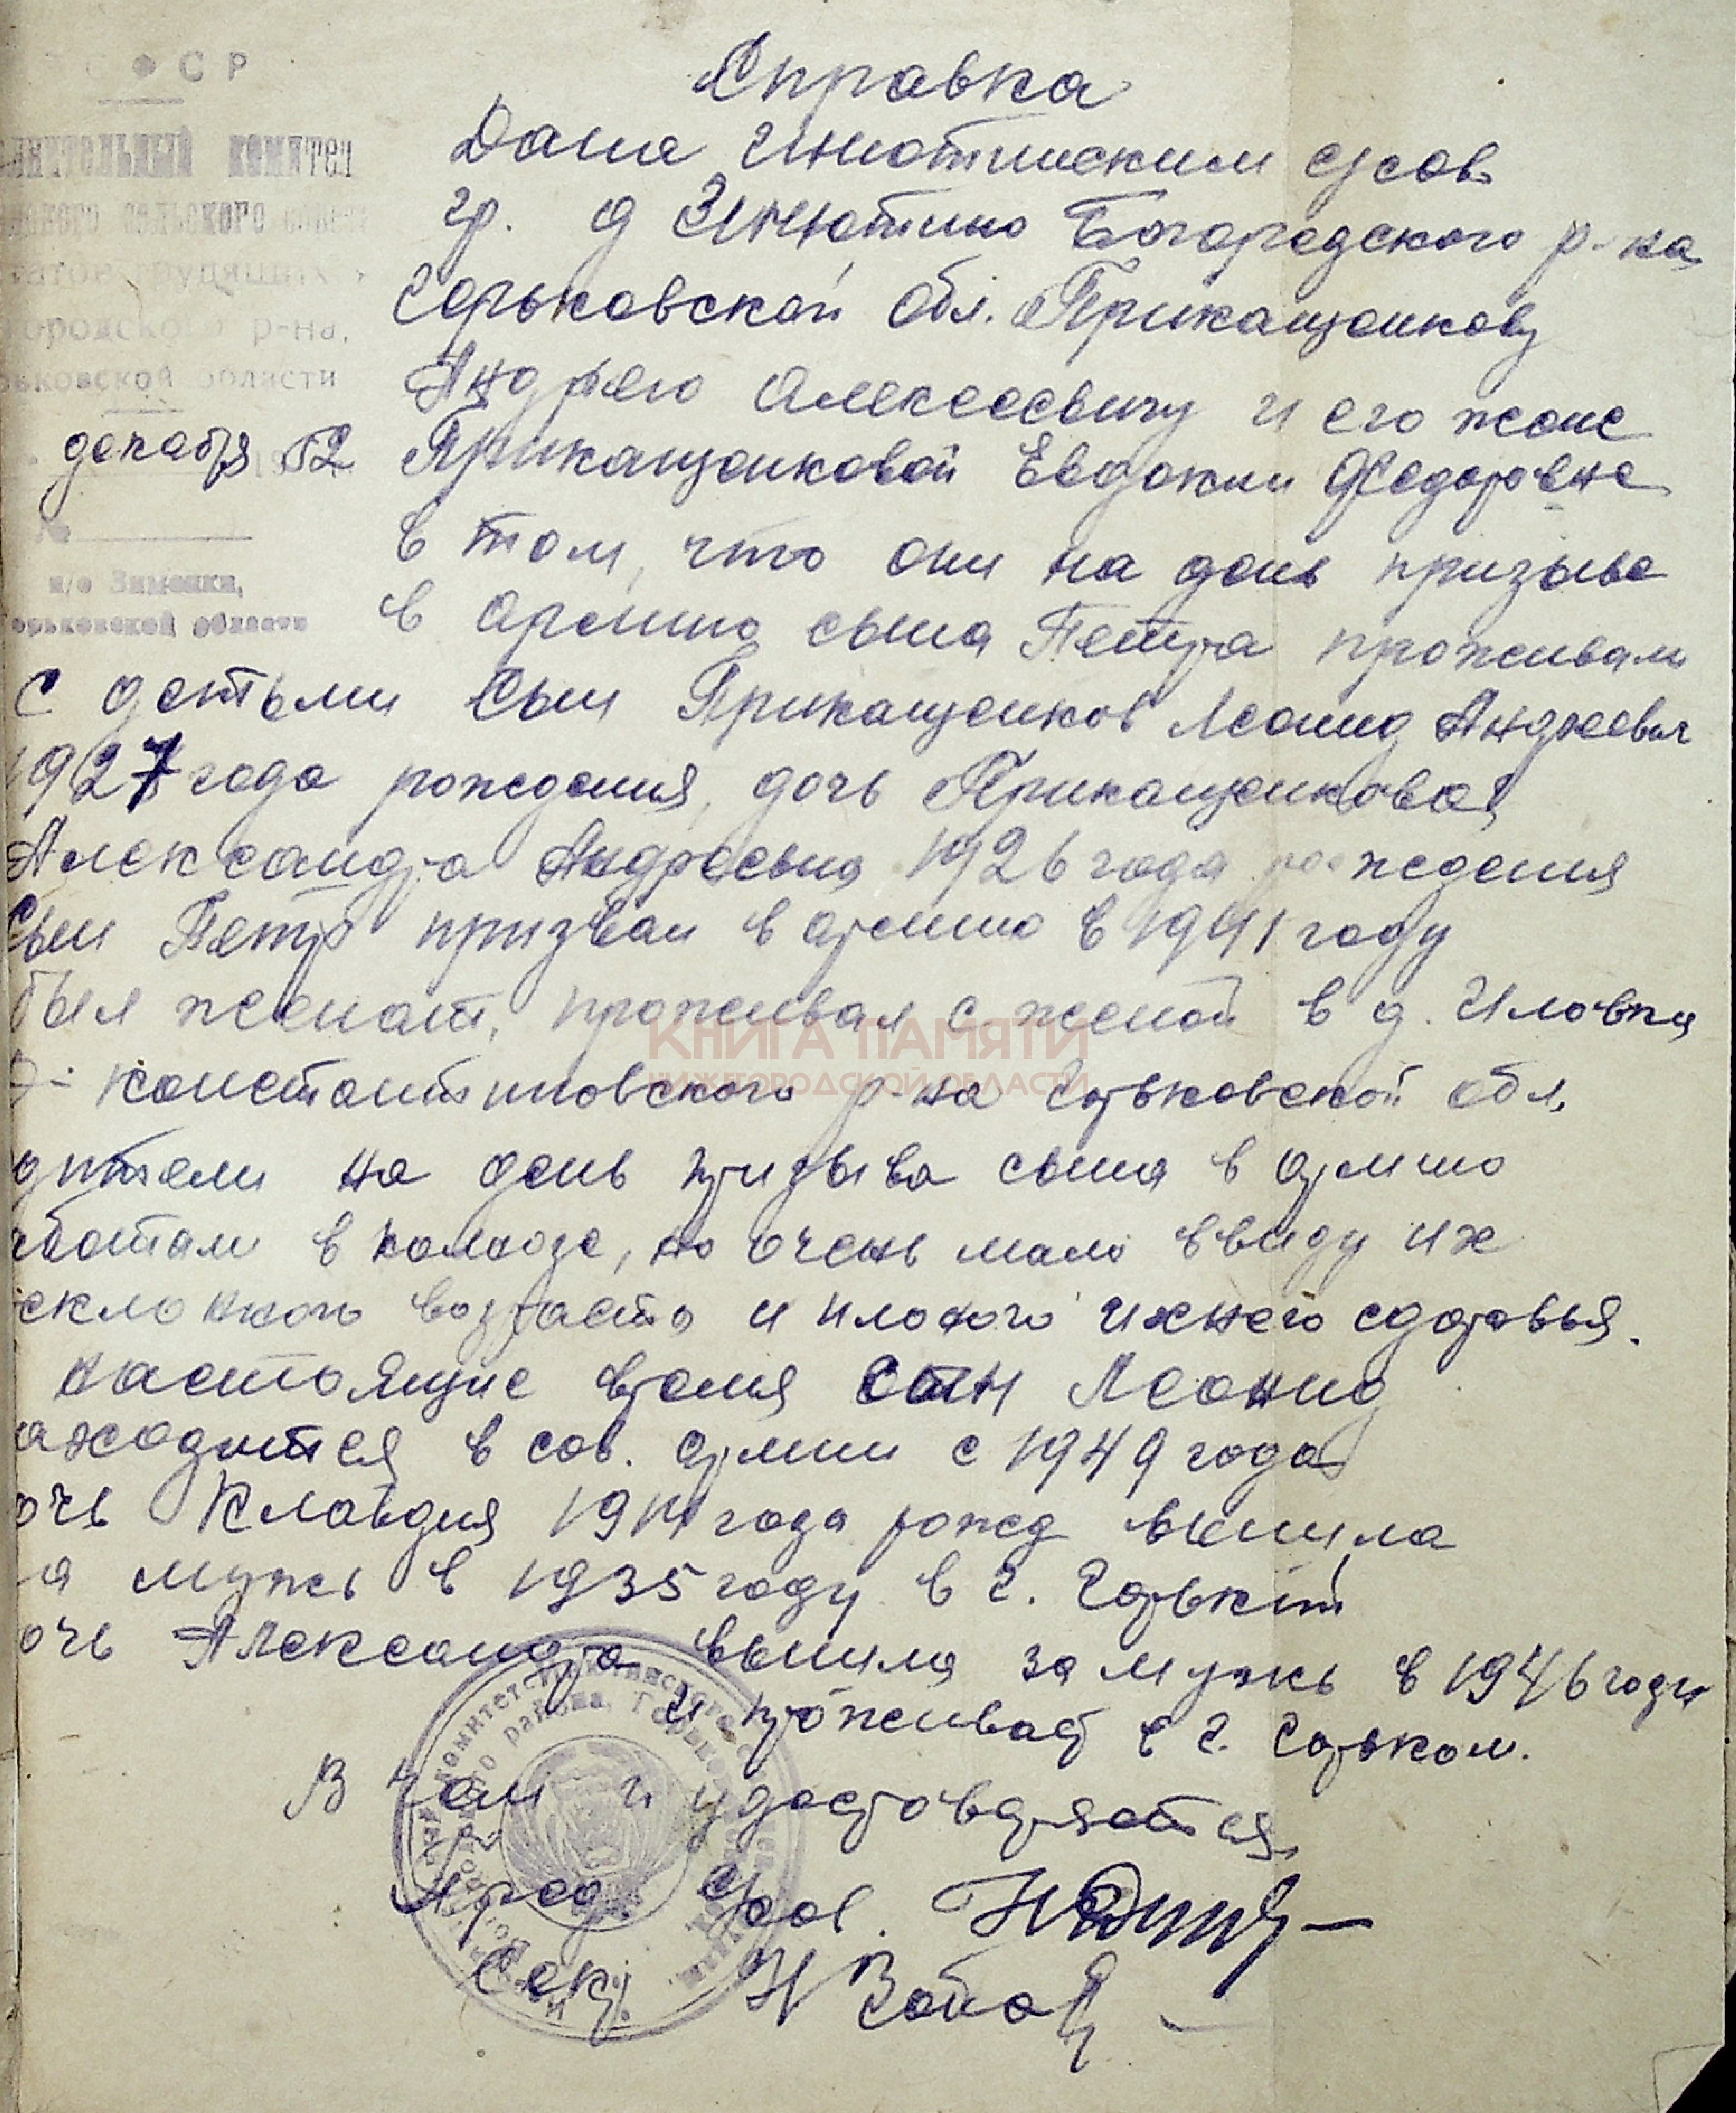 ФСР
нительный комитет
ского сельского совета
татов трудящихся
городского р-на,
рьковской области
декабря 1952
№
п/о Зименки,
Горьковской области
Справка
Дана Инютинским с/сов.
гр. д Инютино Богородского р-на
Горьковской обл. Приказщикову
Андрею Алексеевичу и его жене
Приказщиковой Евдокии Федоровне
в том, что они на день призыва
в армию сына Петра проживали
с детьми сын Приказщиков Леонид Андреевич
1927 года рождения, дочь Приказщикова
Александра Андреевна 1926 года рождения
Сын Петр призван в армию в 1941 году
был женат, проживал с женой в д.
Д-Константиновского р-на Горьковской обл.
дители на день призыва сына в армию
аботали в колхозе, но очень мало ввиду их
еклонного возраста и плохого ихнего здоровья.
настоящие время сын Леонид
аходится в сов. армии с 1949 года
очь Клавдия года рожд вышла
а мужь в 1935 году в г. Горький
очь Александра вышла за мужь в 1946 году
и проживает в г. Горьком.
В чем и удостоверяется
Пред. с/сов.
Секр.
КНИГА ПАМЯТИ
НИЖЕГОРОДСКОЙ ОБЛАСТИ